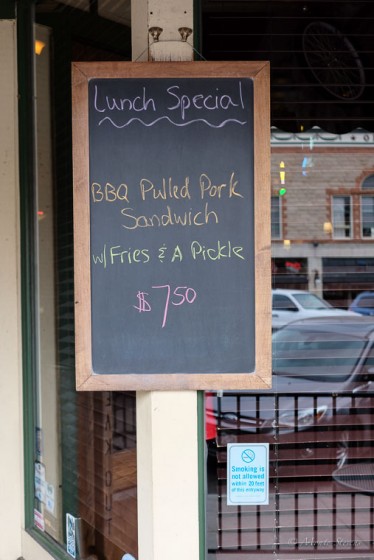 Lunch Special
BBQ Pulled Pork
Sandwich
w/ Fries & A Pickle
$7.50
Smoking is
not allowed
within 20 feet
of this entryway